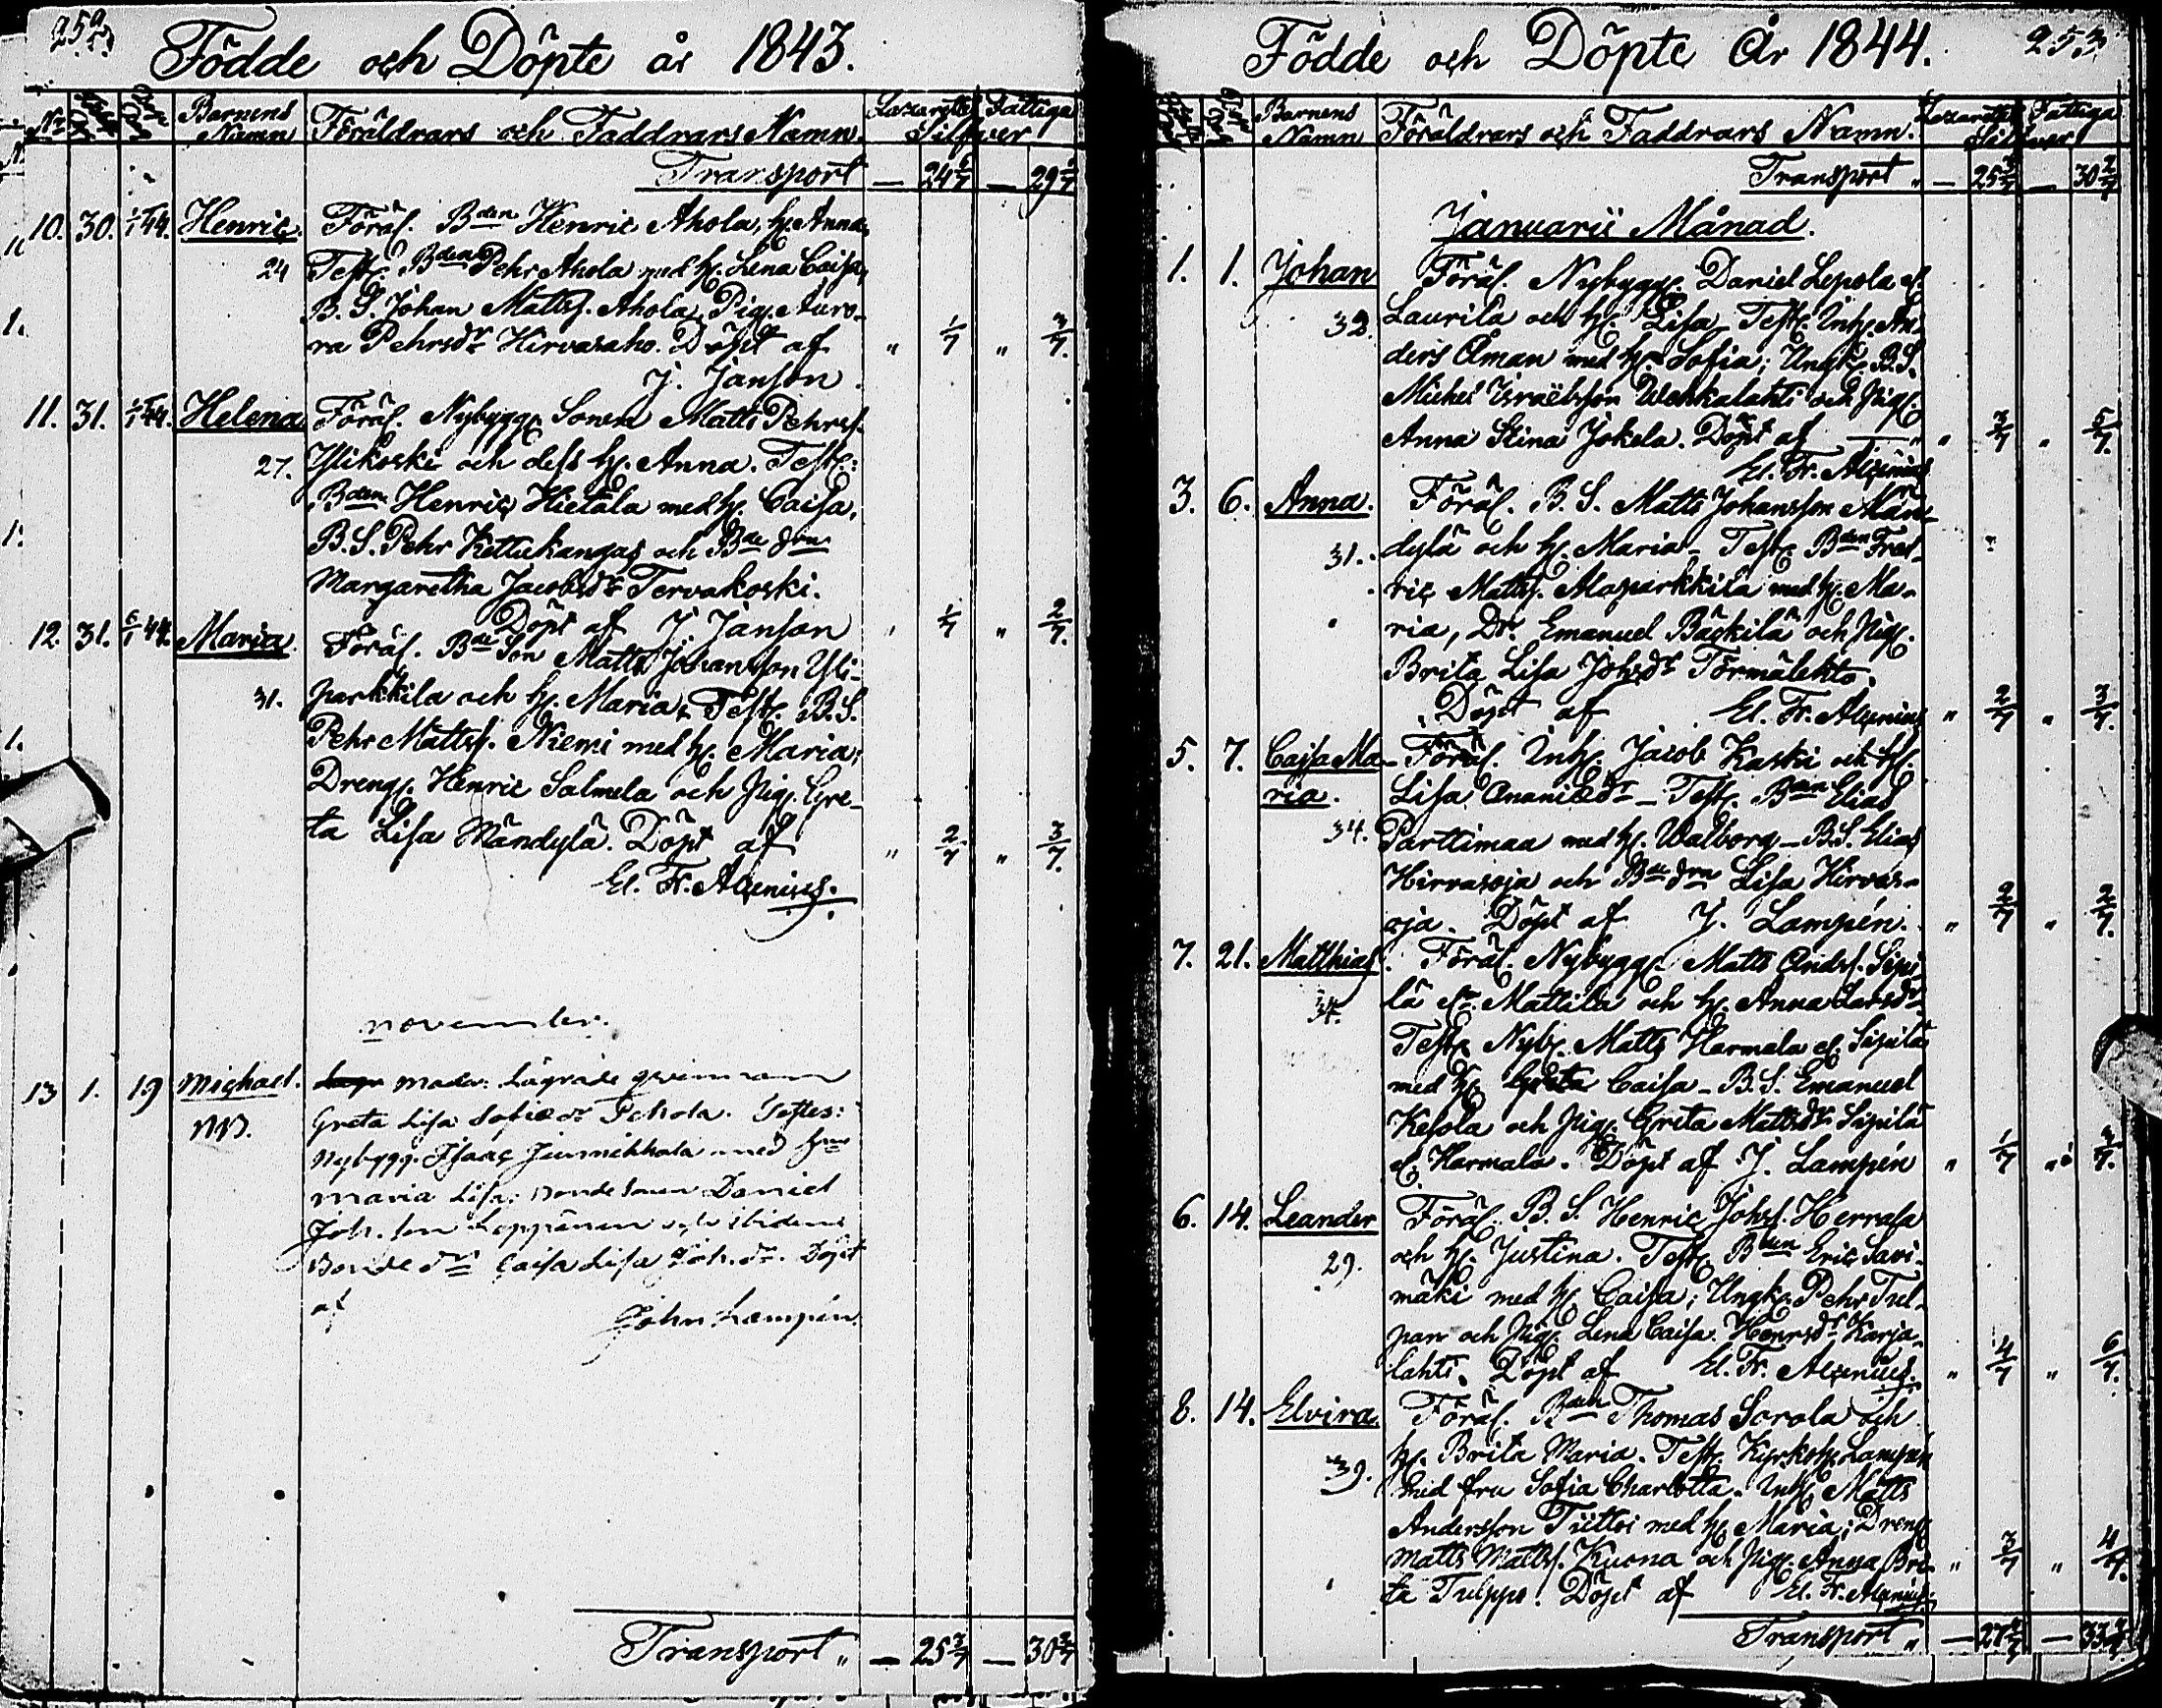 252
Födde och Döpte år 1843.
Barnens Namn
Föräldrars och Faddrars Namn.
Lazarettet Fattiga
Silfver
Transport — 24 6/7 — 29
10. 30. 1/1 44. Henric. Föräl. Bden Henric Ahola, h. Anna,
24 Test. Bden Pehr Ahola med h. Lena Caisa,
B. S. Johan Matts. Ahola, Pig. Auro-
ra Pehrsdr Hirvasaho. Döpt af " 1/7 " 3/7.
J. Janson.
11. 31. 1/1 44. Helena Föräl. Nybygg. Sonen Matts Pehrs.
27. Ylikoski och dess h. Anna. Test.:
Bden Henric Hietala med h. Caisa,
B. S. Pehr Kettukangas och Bde dren
Margaretha Jacobsdr Tervakoski.
Döpt af J. Janson " 1/7 " 2/7.
12. 31. 6/1 44. Maria. Föräl. Bde Son Matts Johansson Yli-
31. parkkila och h. Maria, Test. B. S.
Pehr Mattss. Niemi med h. Maria;
Dreng. Henric Salmela och Pig. Gre-
ta Lisa Mändylä. Döpt af " 2/7 " 3/7.
El. Fr. Alcenius.
november.
13 1. 19 Michael. moder: Lägrade qvinnan
Greta Lisa Pehola. Testes:
Nybygg. Isaac med
Maria Lisa; Bondesonen Daniel
Joh. son Leppänen och ibidem
Bonde dr Caisa Lisa Joh. dr. Döpt
af
John Lampén.
Transport " — 25 3/7 — 30 2/7
Födde och Döpte År 1844. 253
Barnens Namn
Föräldrars och Faddrars Namn.
Lazarettet Fattiga
Silfver
Transport " — 25 3/7 — 30 2/7
Januarii Månad.
1. 1. Johan Föräl. Nybygg. Daniel Lepola el.
32. Laurila och h. Lisa, Test. Inh. An-
ders Åman med h. Sofia; Ungk. B. S.
Michel Israëlsson Wehkalahti och Pig.
Anna Stina Jokela. Döpt af " 3/7 " 5/7.
El. Fr. Alcenius
3. 6. Anna. Föräl. B. S. Matts Johansson Män-
31. dylä och h. Maria – Test. Bden Fred-
ric Matts. Alaparkkila med h. Ma-
ria, Dr. Emanuel Bäckilä och Pig.
Brita Lisa Johsdr Törmälehto.
Döpt af El. Fr. Alcenius " 2/7 " 3/7.
5. 7. Caisa Ma- Föräl. Inh. Jacob Kaski och h.
ria. Lisa Ananiædr – Test. Bden Elias
34. Parttimaa med h. Walborg – B. S. Elias
Hirvasoja och Bde dren Lisa Hirvas-
oja. Döpt af J. Lampén. " 2/7 " 2/7.
7. 21. Matthias. Föräl. Nybygg. Matts Anders. Sipi-
34. lä el. Mattila och h. Anna Larsdr
Test. Nyb. Matts Harmala el. Sipilä
med h. Greta Caisa – B. S. Emanuel
Kesola och Pig. Greta Mattsdr Sipilä
el. Harmala. Döpt af J. Lampén " 1/7
6. 14. Leander Föräl. B. S. Henric Johs. Herrala
29. och h. Justina. Test. Bden Eric Savi-
mäki med h. Caisa; Ungk. Pehr Tul-
pan och Pig. Lena Caisa Henrsdr Karja-
lahti. Döpt af El. Fr. Alcenius. " 4/7 " 6/7.
8. 14. Elvira. Föräl. Bden Thomas Sorola och
39. h. Brita Maria. Test. Kyrkoh. Lampén
med fru Sofia Charlotta. Inh. Matts
Andersson Tiitto med h. Maria; Dreng
Matts Matts. Kuona och Pig. Anna Bri- " 3/7 " 4/7.
ta Tulppo. Döpt af El. Fr. Alcenius.
Transport " — 27 — 33